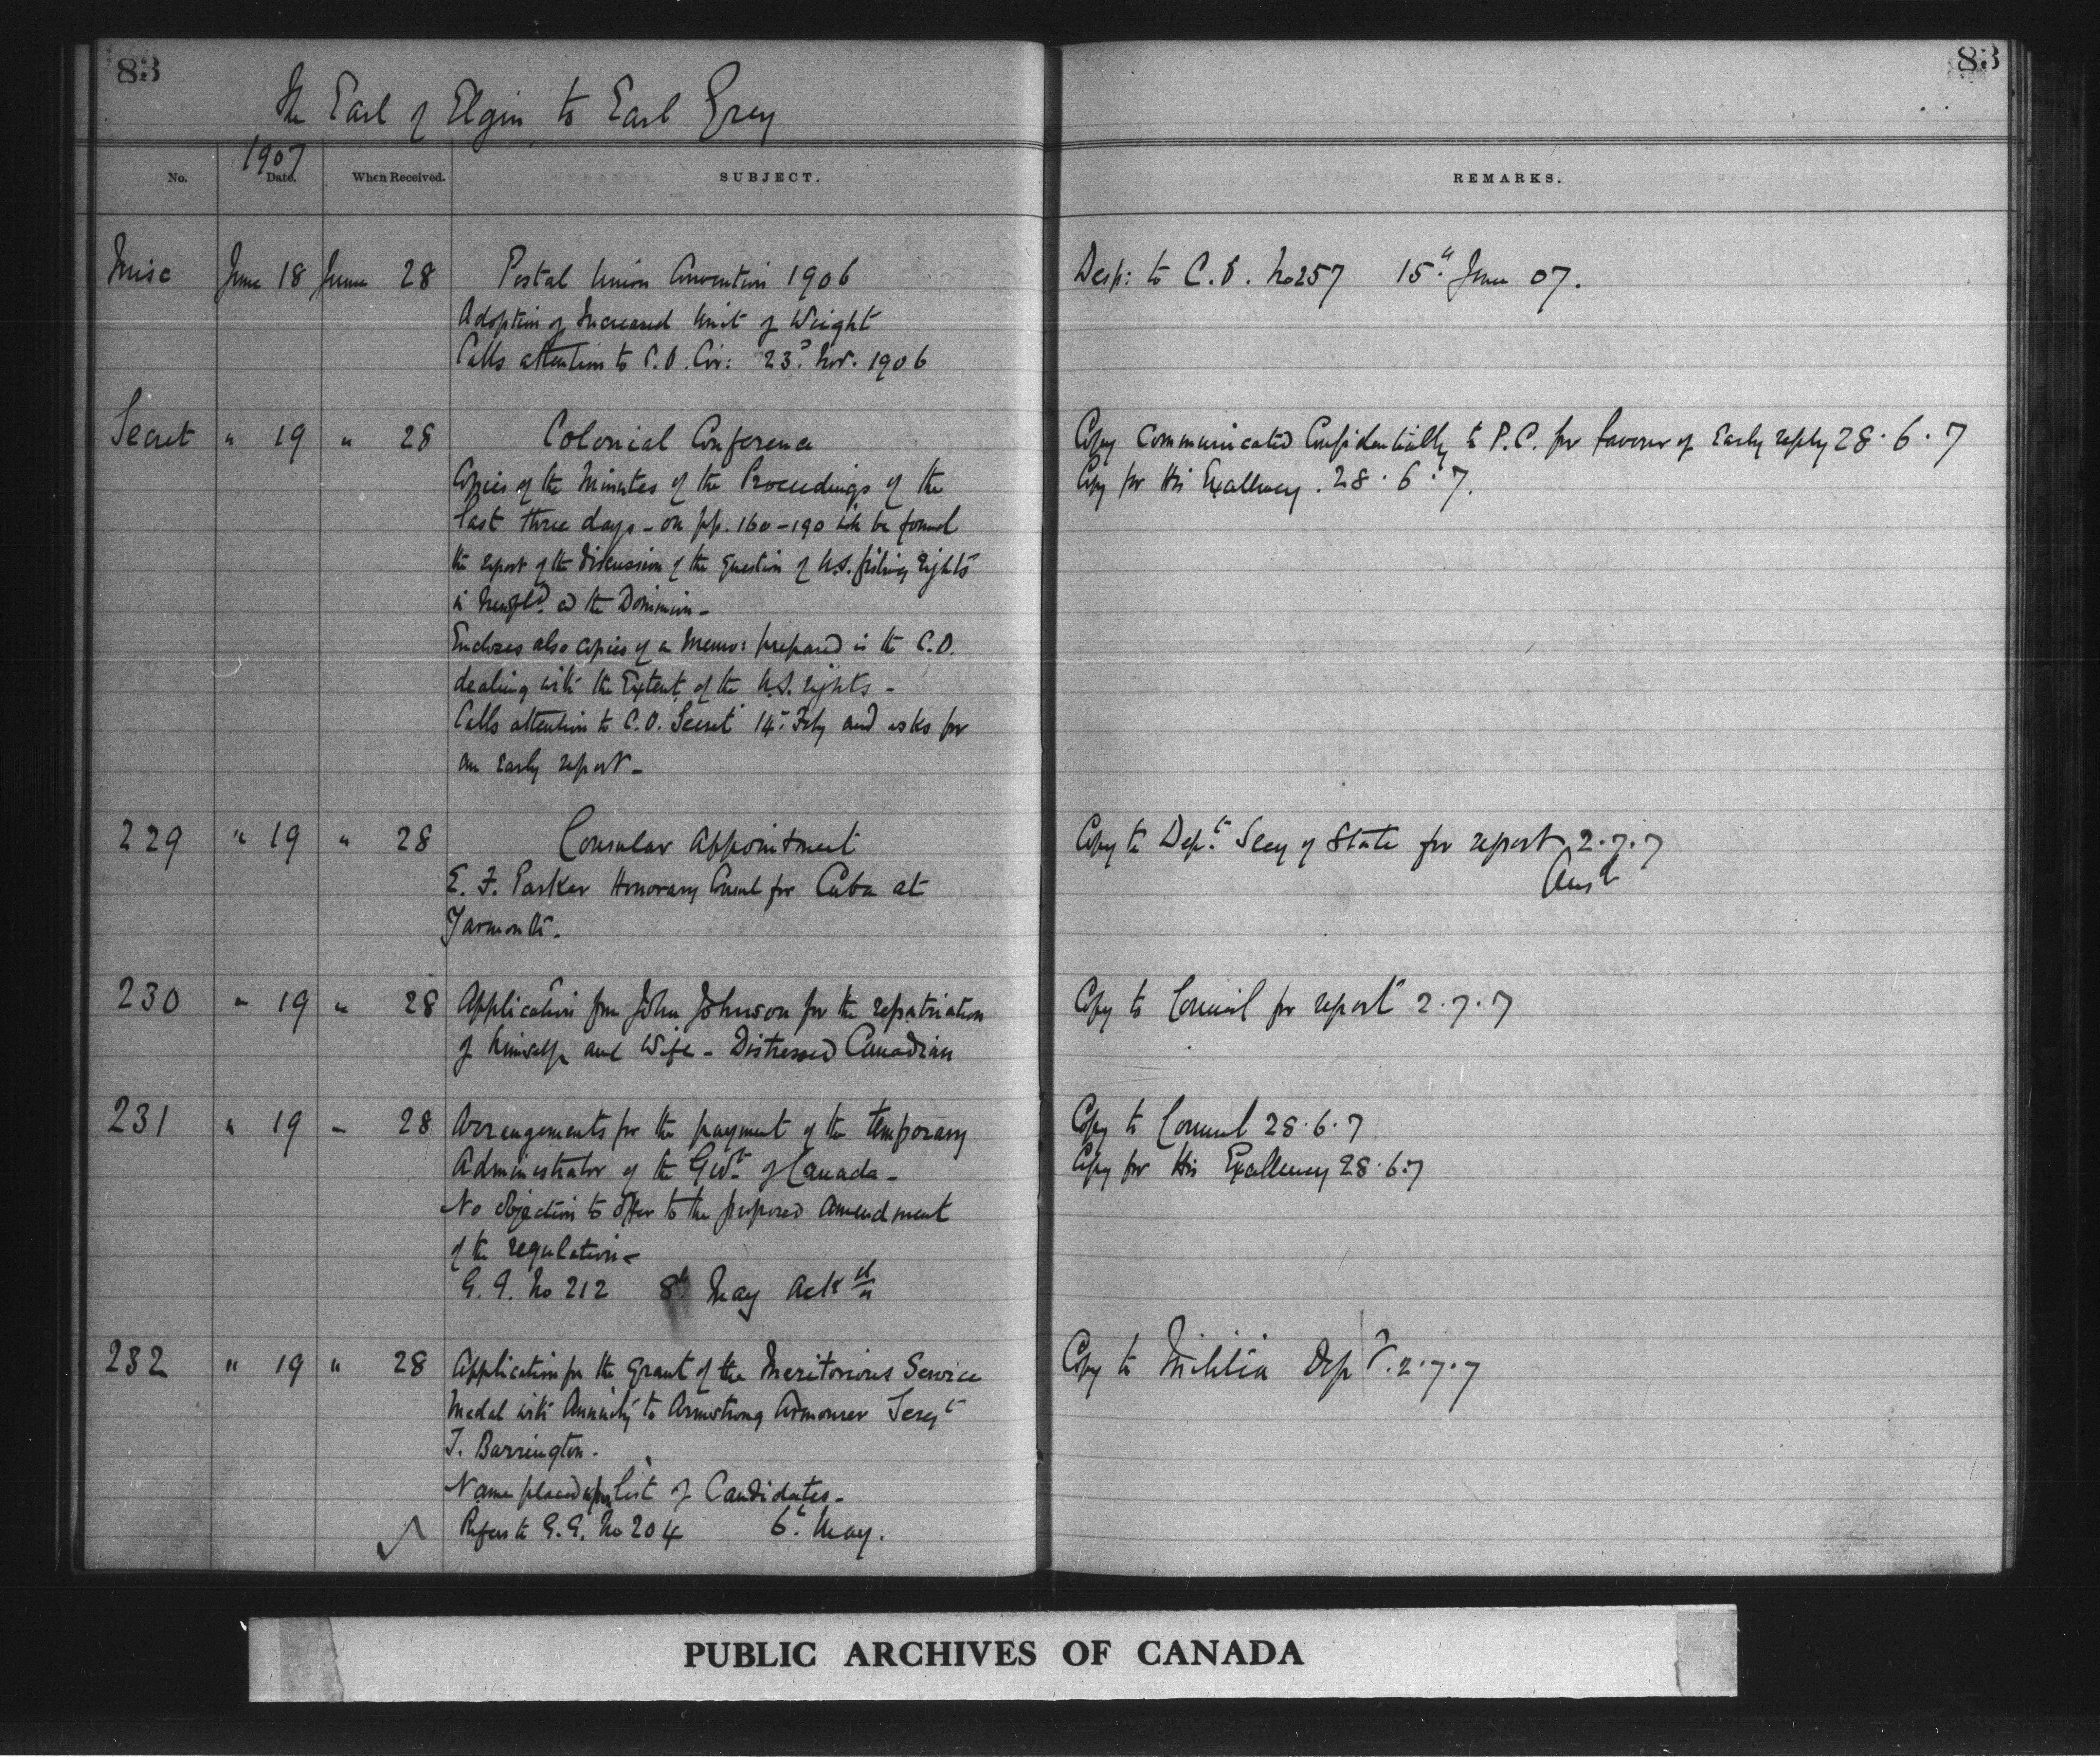 83
83
The Earl of Elgin to Earl Grey
1907
No. Date. When Received. SUBJECT. REMARKS.
Misc June 18 June 28 Postal Union Convention 1906 Desp: to C.O. No 257 15th June 07.
Adoption of Increased Unit of Weight
Calls attention to C.O. Cir: 23d. Nov. 1906
Secret " 19 " 28 Colonial Conference Copy Communicated Confidentially to P.C. for favour of Early reply 28.6.7
Copies of the Minutes of the Proceedings of the Copy for His Excellency. 28.6.7.
last three days - on pp. 160-190 will be found
the report of the discussion of the question of U.S. fishing rights
in Newfld. and the Dominion -
Encloses also copies of a Memo: prepared in the C.O.
dealing with the Extent of the U.S. rights -
Calls attention to C.O. Secret 14th Feby and asks for
an Early report -
229 " 19 " 28 Consular Appointment Copy to Dept. Secy of State for report 2.7.7
Ansd
E. F. Parker Honorary Consul for Cuba at
Yarmouth -
230 " 19 " 28 Application from John Johnson for the repatriation Copy to Council for report 2.7.7
of himself and Wife - Distressed Canadian
231 " 19 " 28 Arrangements for the payment of the temporary Copy to Council 28.6.7
Administrator of the Govt. of Canada - Copy for His Excellency 28.6.7
No objection to offer to the proposed Amendment
of the regulation -
G.G. No 212 8th May Ackd
232 " 19 " 28 Application for the grant of the Meritorious Service Copy to Militia Dept. 2.7.7
Medal with Annuity to Armstrong Armourer Sergt
T. Barrington.
Name placed upon list of Candidates -
Refers to G.G. No 204 6th May.
PUBLIC ARCHIVES OF CANADA